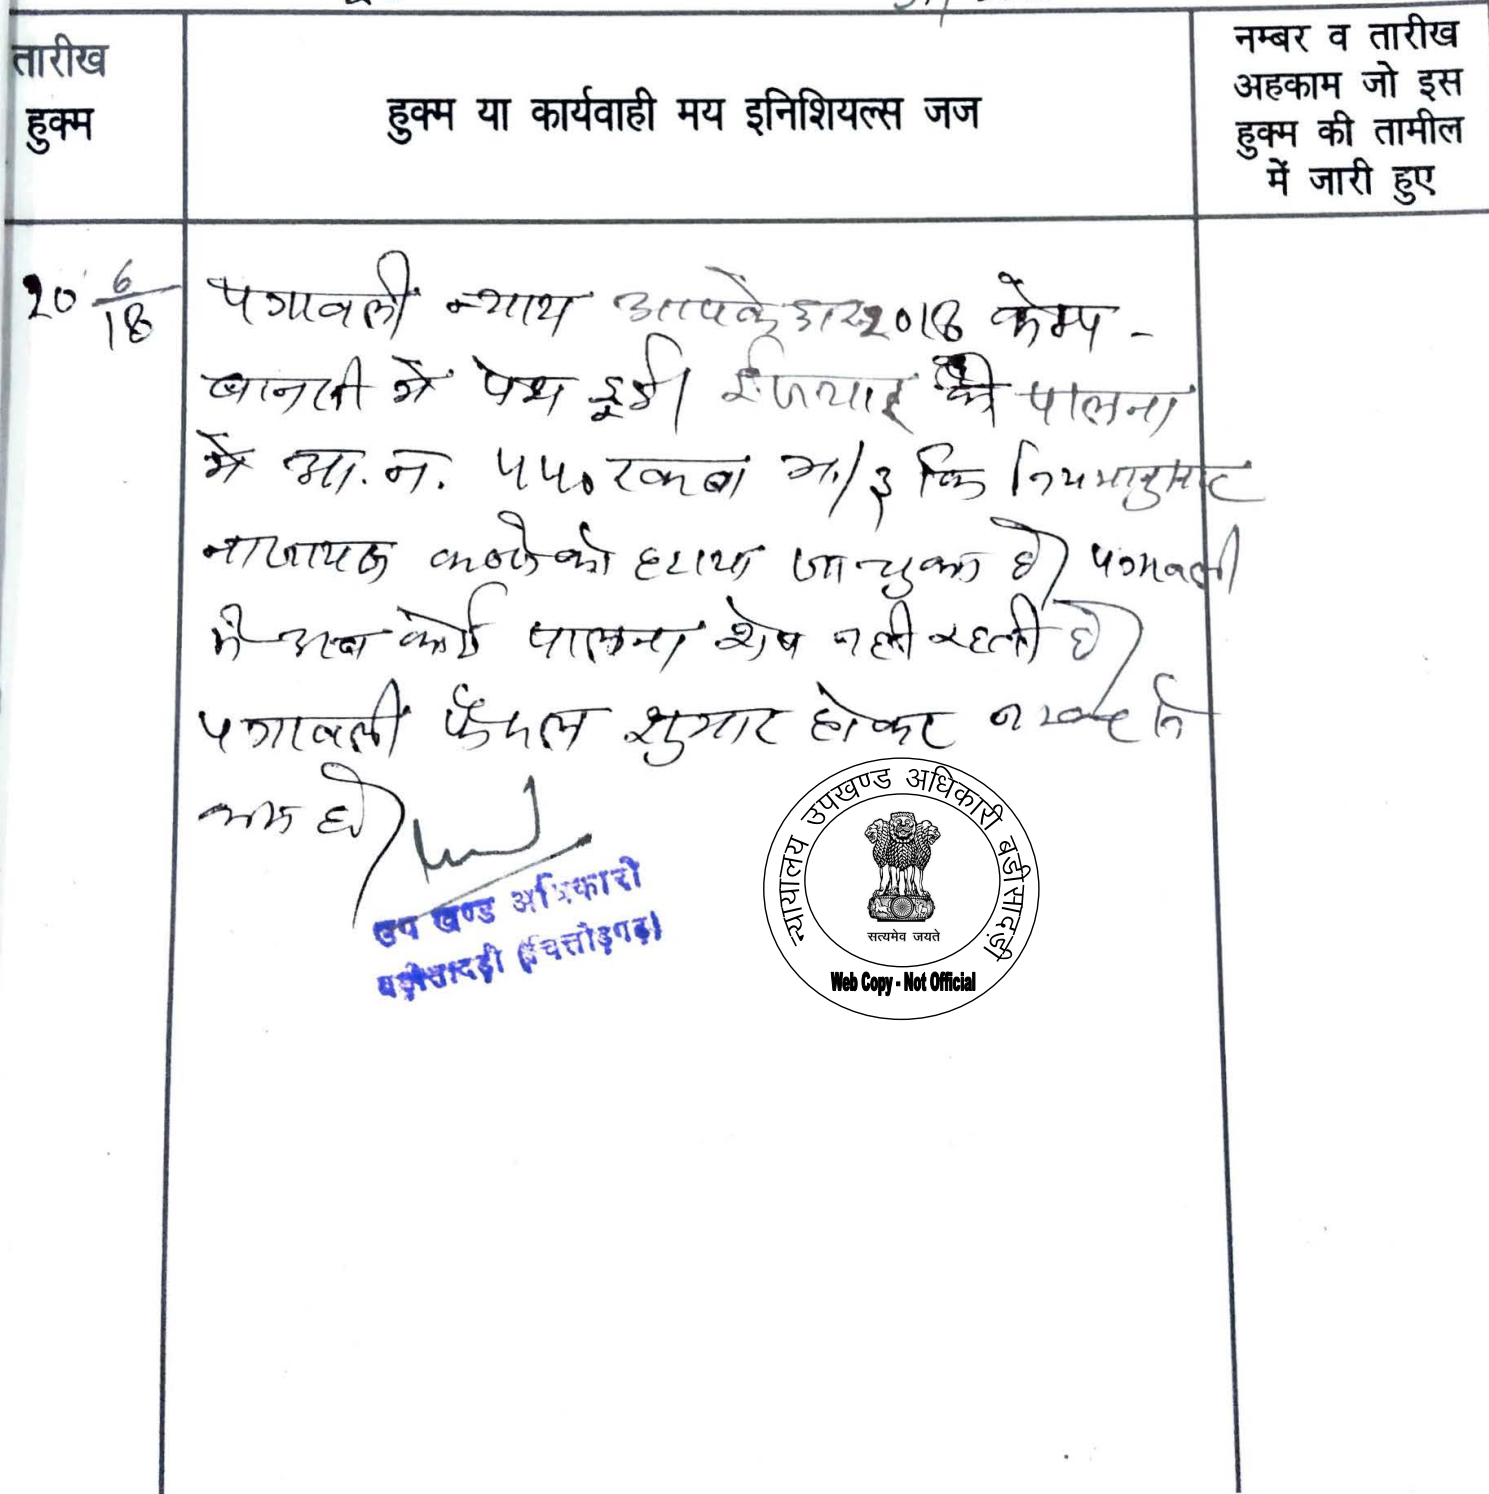 तारीख
हुक्म
हुक्म या कार्यवाही मय इनिशियल्स जज
नम्बर व तारीख
अहकाम जो इस
हुक्म की तामील
में जारी हुए
20 6/18
पत्रावली न्याय आपके द्वार 2018 केम्प -
में पेश हुई। की पालना
मे आ.न. रकबा कि नियमानुसार
नाजायज कब्जे को हटाया जा चुका है। पत्रावली
मे अब कोई पालना शेष नही रहती है।
पत्रावली फैसल शुमार होकर
हो।
उप खण्ड अधिकारी
बड़ीसादड़ी (चित्तौड़गढ़)
न्यायालय उपखण्ड अधिकारी बडीसादड़ी
सत्यमेव जयते
Web Copy - Not Official